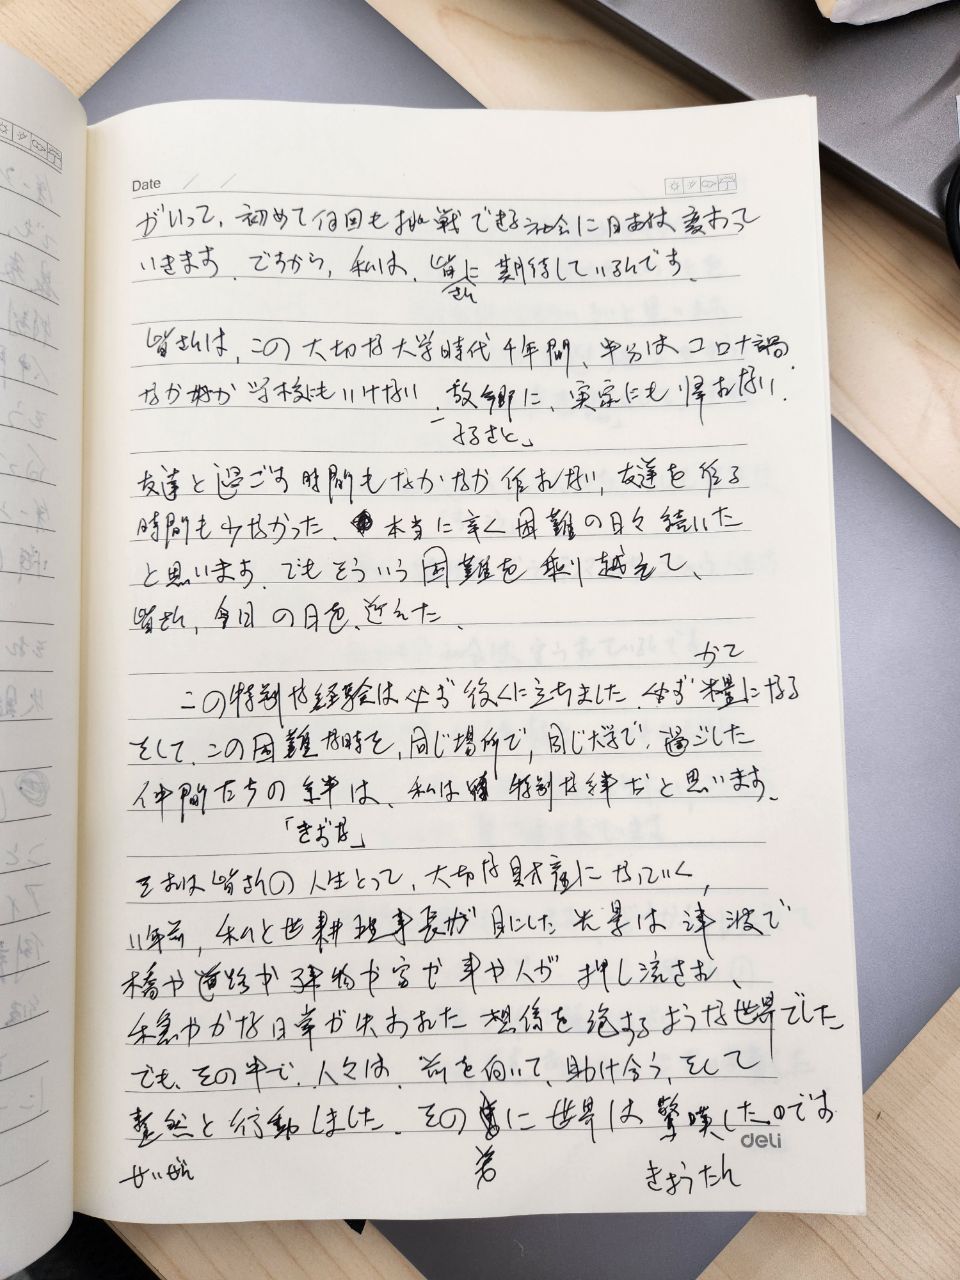 Date / /
がいって、初めて何回も挑戦できる社会に日本は変わって
いきます。ですから、私は、皆に期待しているんです。
さん
皆さんは、この大切な大学時代4年間、半分はコロナ禍、
なかなか学校にもいけない、故郷に、実家にも帰れない、
「ふるさと」
友達と過ごす時間もなかなか作れない、友達を作る
時間も少なかった。本当に辛く困難の日々続いた
と思います。でもそういう困難を乗り越えて、
皆さん、今日の日を、迎えた。
かて
この特別な経験は必ず役に立ちました。必ず糧になる
そして、この困難な時を、同じ場所で、同じ大学で、過ごした
仲間たちの絆は、私は特別な絆だと思います。
「きずな」
それは皆さんの人生とって、大切な財産になっていく、
11年前、私と世耕理事長が目にした光景は津波で
橋や道路や建物や家や車や人が押し流され、
穏やかな日常が失われた想像を絶するような世界でした
でも、その中で、人々は、前を向いて、助け合う、そして
整然と行動しました。その に世界は驚嘆したのです
せいぜん
姿
きょうたん
deli